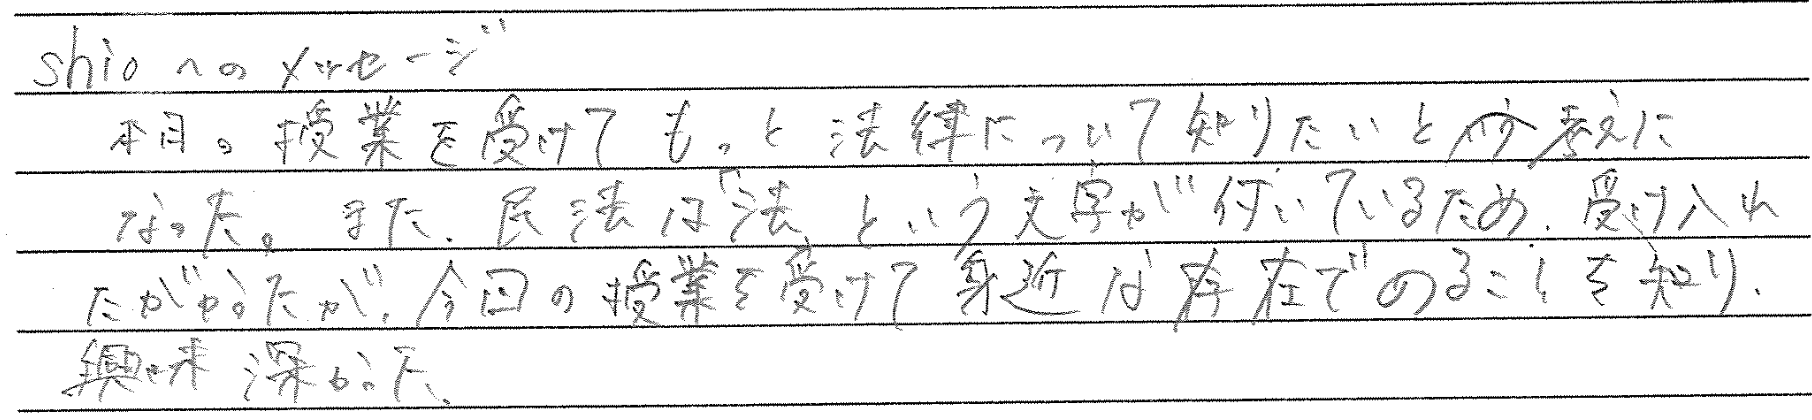 shioへのメッセージ
本日の授業を受けてもっと法律について知りたいと 考えに
なった。また、民法は「法」という文字が付いているため、受け入れ
たがかったが、今回の授業を受けて身近な存在であることを知り、
興味深かった。